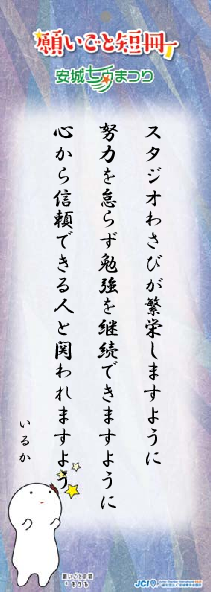 願いごと短冊
安城七夕まつり
スタジオわさびが繁栄しますように
努力を怠らず勉強を継続できますように
心から信頼できる人と関われますよう
いるか
願いごと短冊
JCI